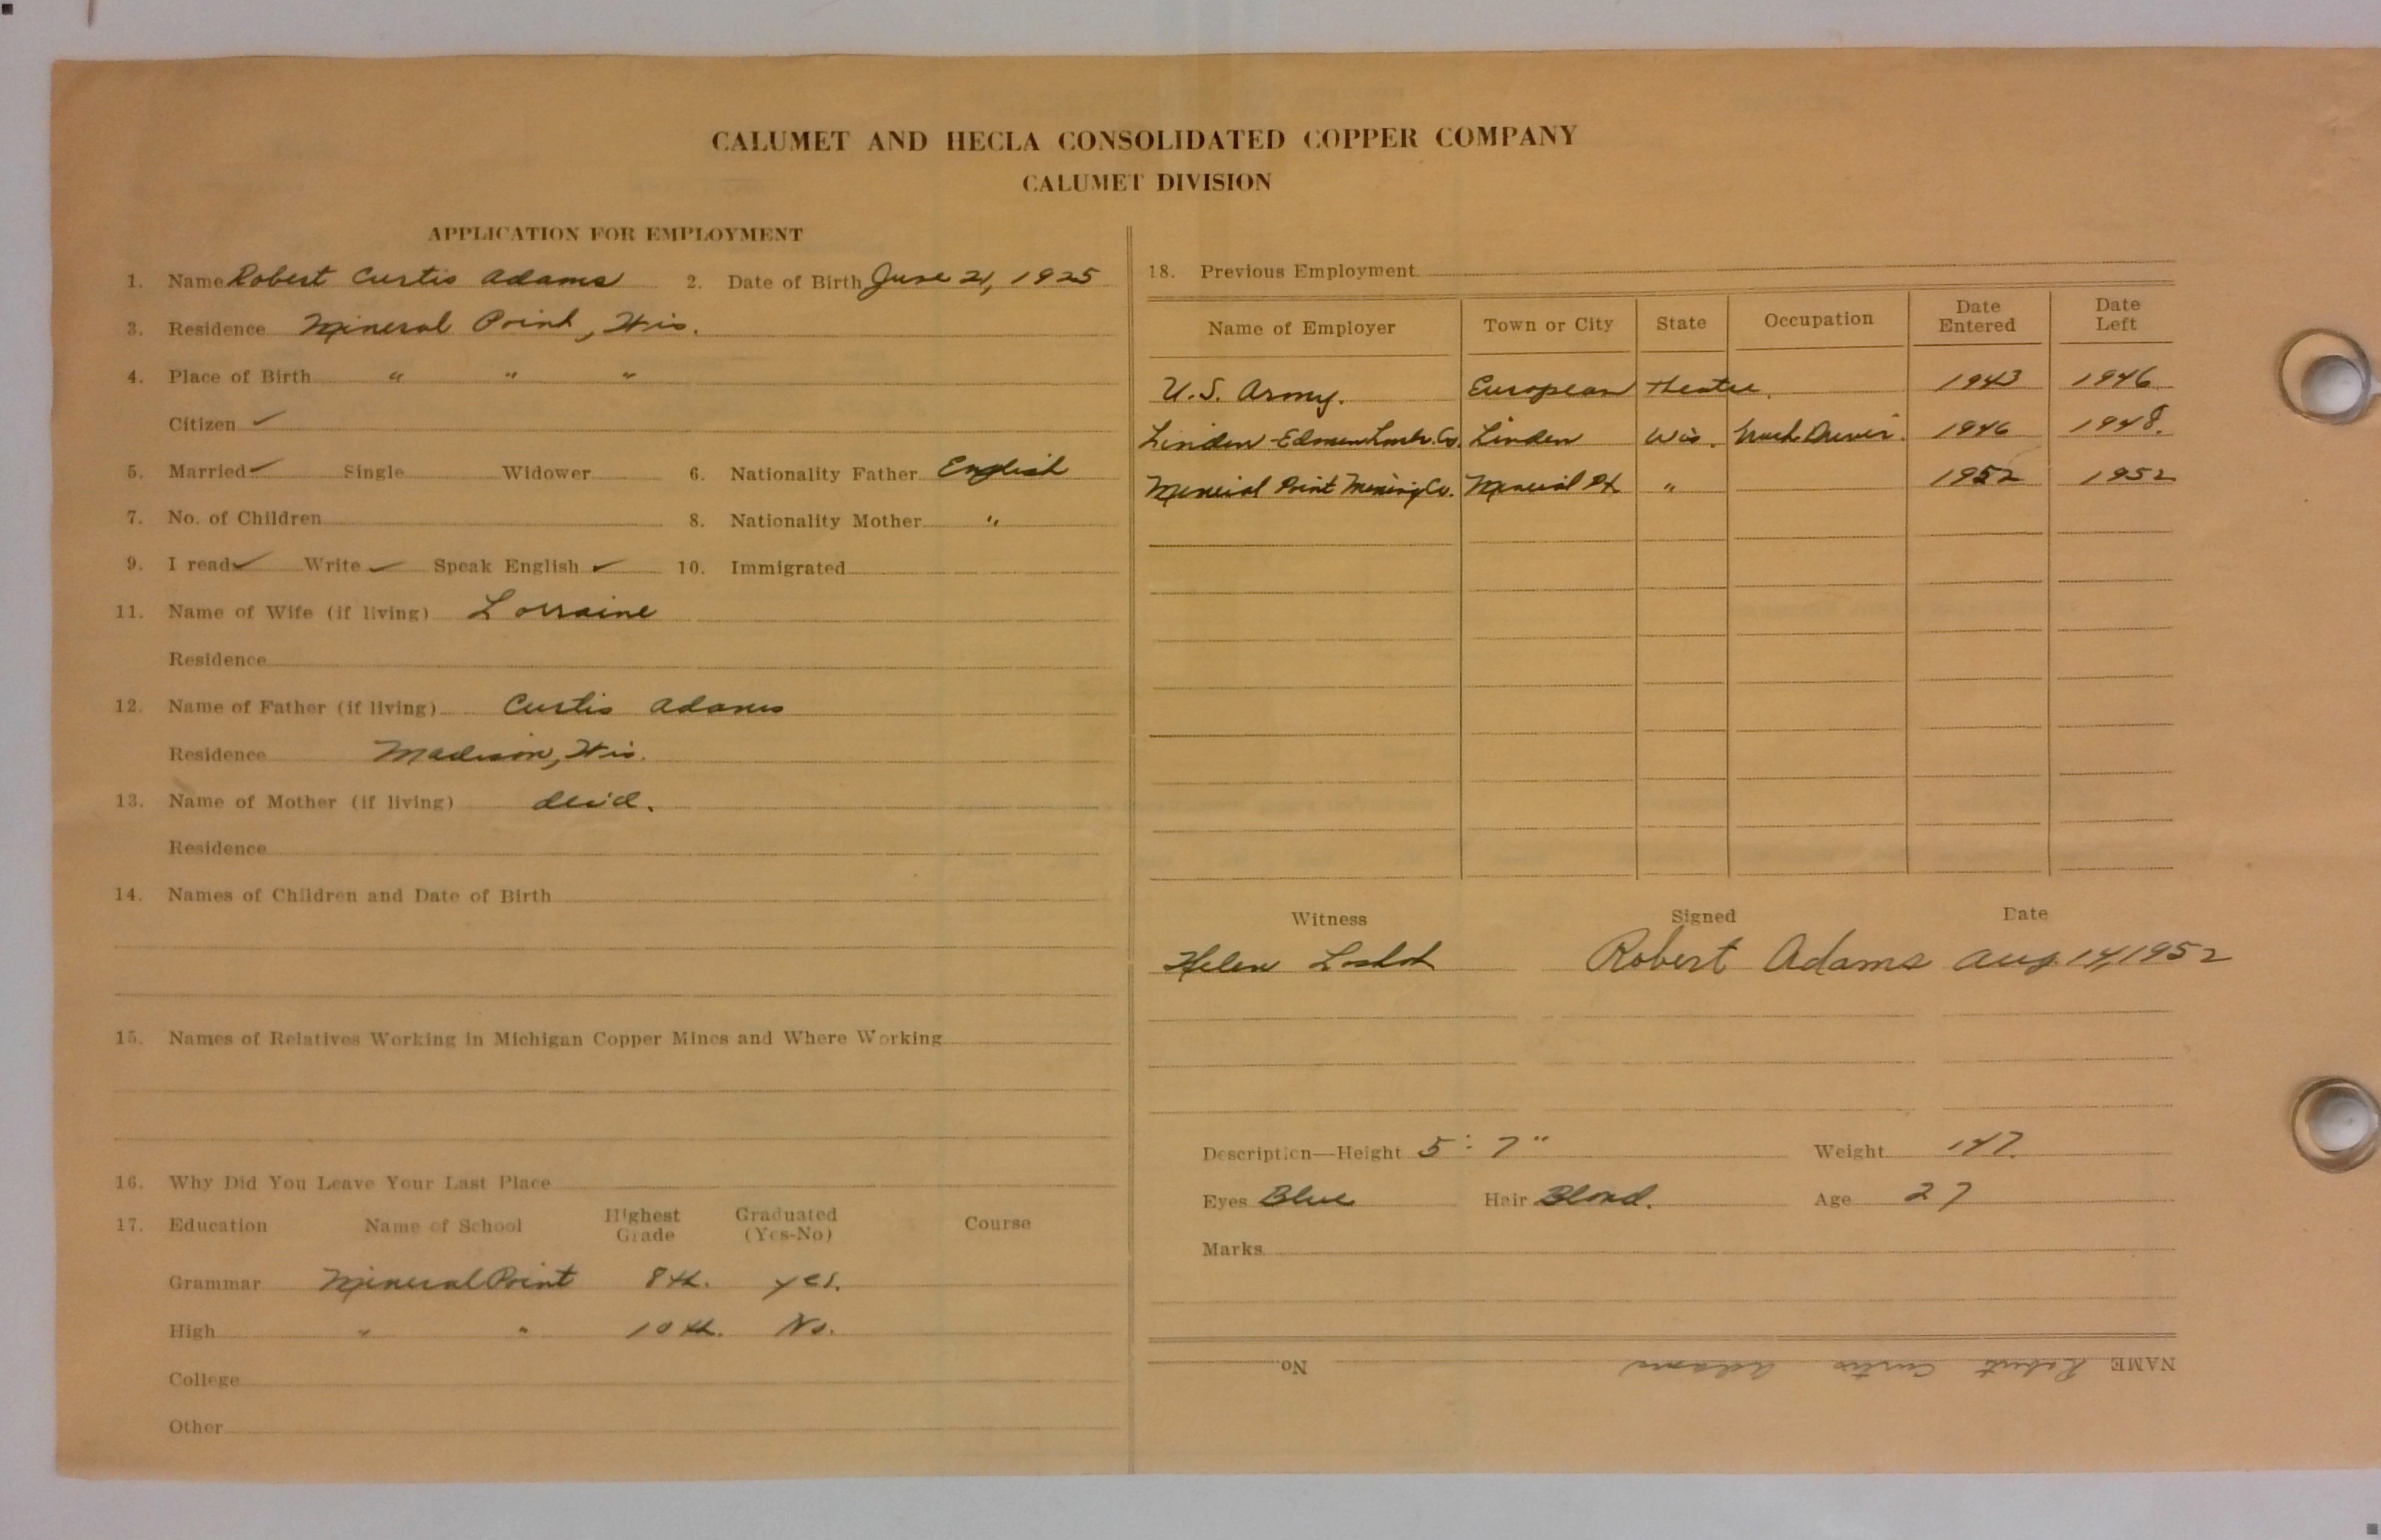 CALUMET AND HECLA CONSOLIDATED COPPER COMPANY
CALUMET DIVISION
APPLICATION FOR EMPLOYMENT
1. Name Robert Curtis Adams 2. Date of Birth June 21, 1925
3. Residence Mineral Point, Wis.
4. Place of Birth " " "
Citizen ✓
5. Married ✓ Single Widower 6. Nationality Father English
7. No. of Children 8. Nationality Mother "
9. I read ✓ Write ✓ Speak English ✓ 10. Immigrated
11. Name of Wife (if living) Lorraine
Residence
12. Name of Father (if living) Curtis Adams
Residence Madison, Wis.
13. Name of Mother (if living)
Residence
14. Names of Children and Date of Birth
15. Names of Relatives Working in Michigan Copper Mines and Where Working
16. Why Did You Leave Your Last Place
17. Education Name of School Highest Grade Graduated (Yes-No) Course
Grammar Mineral Point 8th. yes.
High " " 10th. No.
College
Other
18. Previous Employment
Name of Employer Town or City State Occupation Date Entered Date Left
U.S. Army. European theatre. 1943 1946
Linden Co. Linden Wis. Truck Driver. 1946 1948.
Mineral Point Mining Co. Mineral Pt " 1952 1952
Witness Signed Date
Helen Robert Adams Aug. 14, 1952
Description—Height 5' 7" Weight 147.
Eyes Blue Hair Blond. Age 27
Marks
NAME Robert Curtis Adams No.